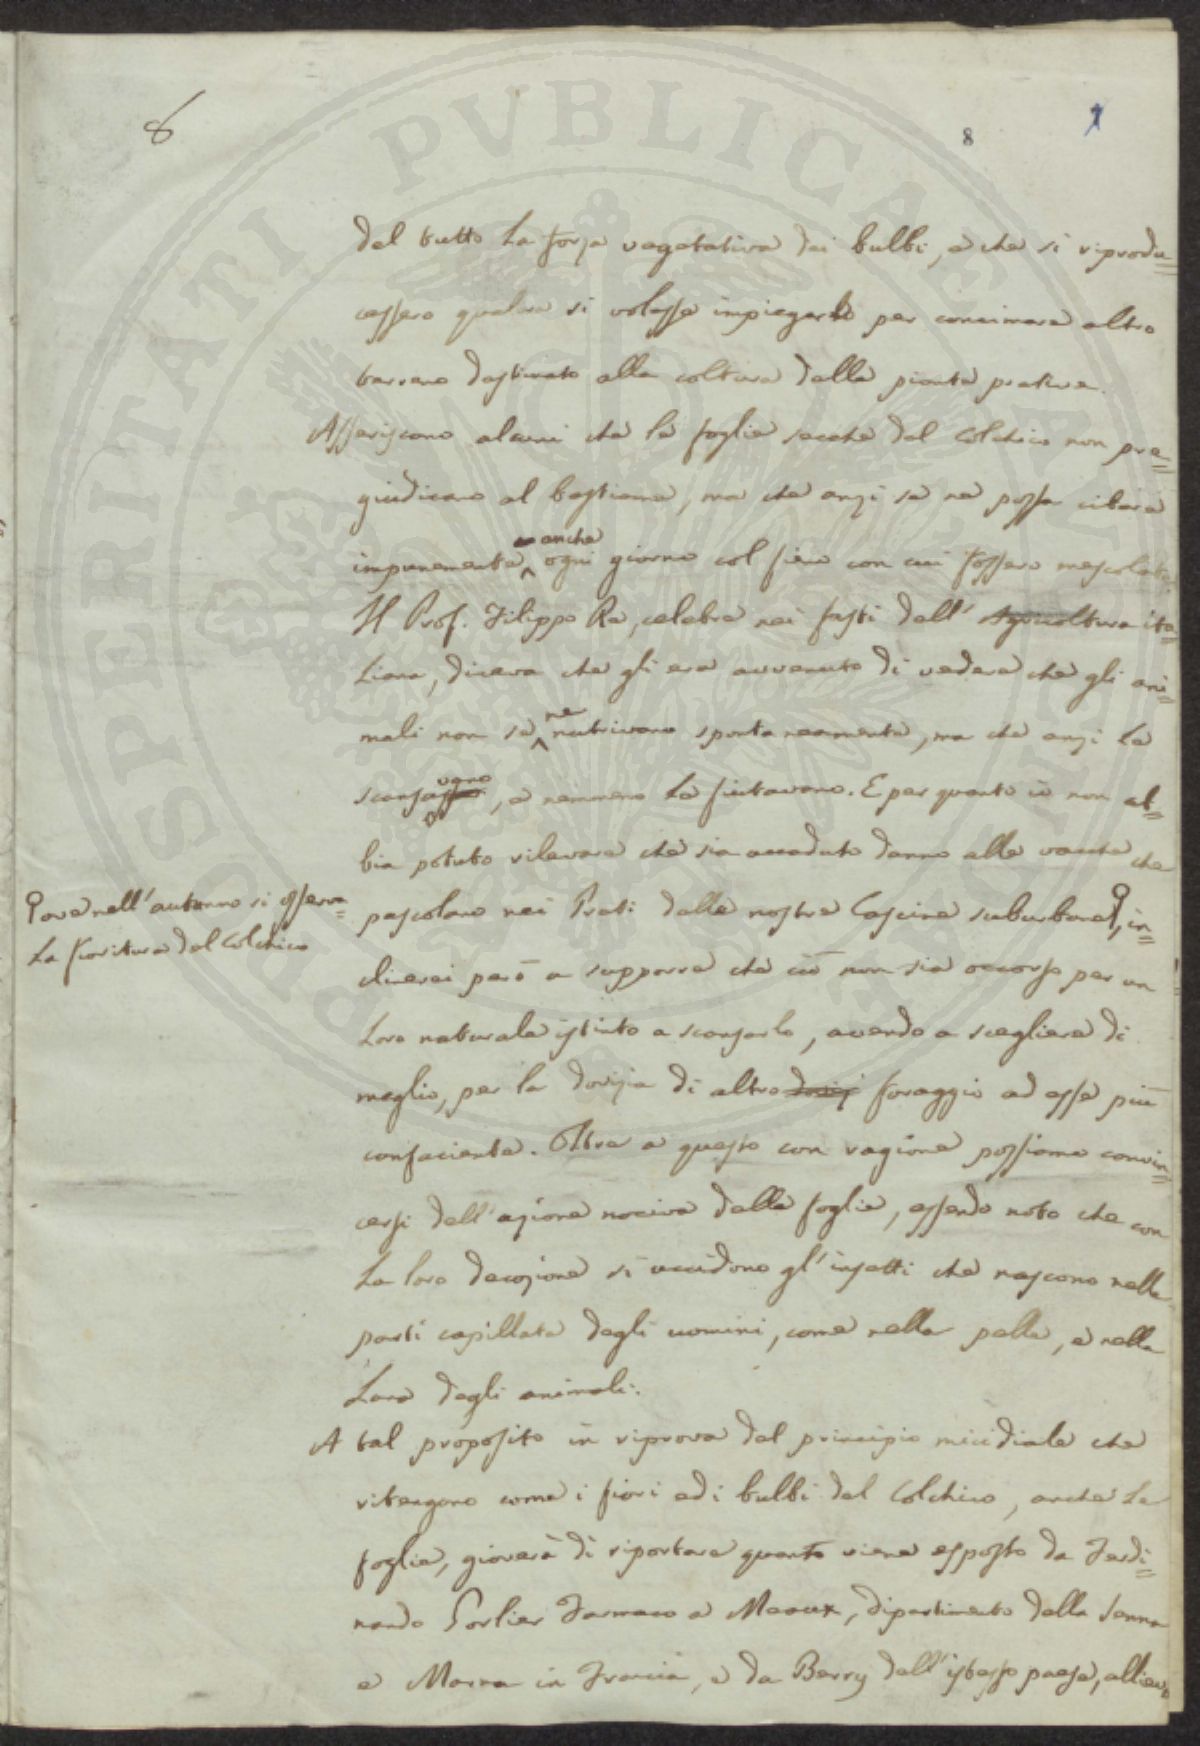 8
8
del tutto la forza vegetativa dei bulbi, e che si riprodu=
cessero qualora si volesse impiegarlo per concimare altro
terreno destinato alla coltura delle piante prative.
Asseriscono alcuni che le foglie secche del Colchico non pre=
giudicano al bestiame, ma che anzi se ne possa cibare
impunemente anche ogni giorno col fieno con cui fossero mescolate.
Il Prof. Filippo Re, celebre nei fasti dell' Agricoltura ita=
liana, diceva che gli era avvenuto di vedere che gli ani=
mali non se ne nutrivano spontaneamente, ma che anzi le
scansavano, e nemmeno le fiutavano. E per quanto io non ab=
bia potuto rilevare che sia accaduto danno alle vacche che
pascolano nei Prati delle nostre Cascine suburbane, in=
ove nell'autunno si osserva=
la fioritura del Colchico
clinerei però a supporre che ciò non sia occorso per un
loro naturale istinto a scansarlo, avendo a scegliere di
meglio, per la dovizia di altro foraggio ad esse più
confaciente. Oltre a questo con ragione possiamo convin=
cersi dell'azione nociva delle foglie, essendo noto che con
la loro decozione si uccidono gl'insetti che nascono nelle
parti capillate degli uomini, come nella pelle, e nella
lana degli animali.
A tal proposito in riprova del principio micidiale che
ritengono come i fiori ed i bulbi del Colchico, anche le
foglie, gioverà di riportare quanto viene esposto da Ferdi=
nando Porlier Farmaco a Meaux, dipartimento della Senna
e Marna in Francia, e da Berry dell'istesso paese, alliev